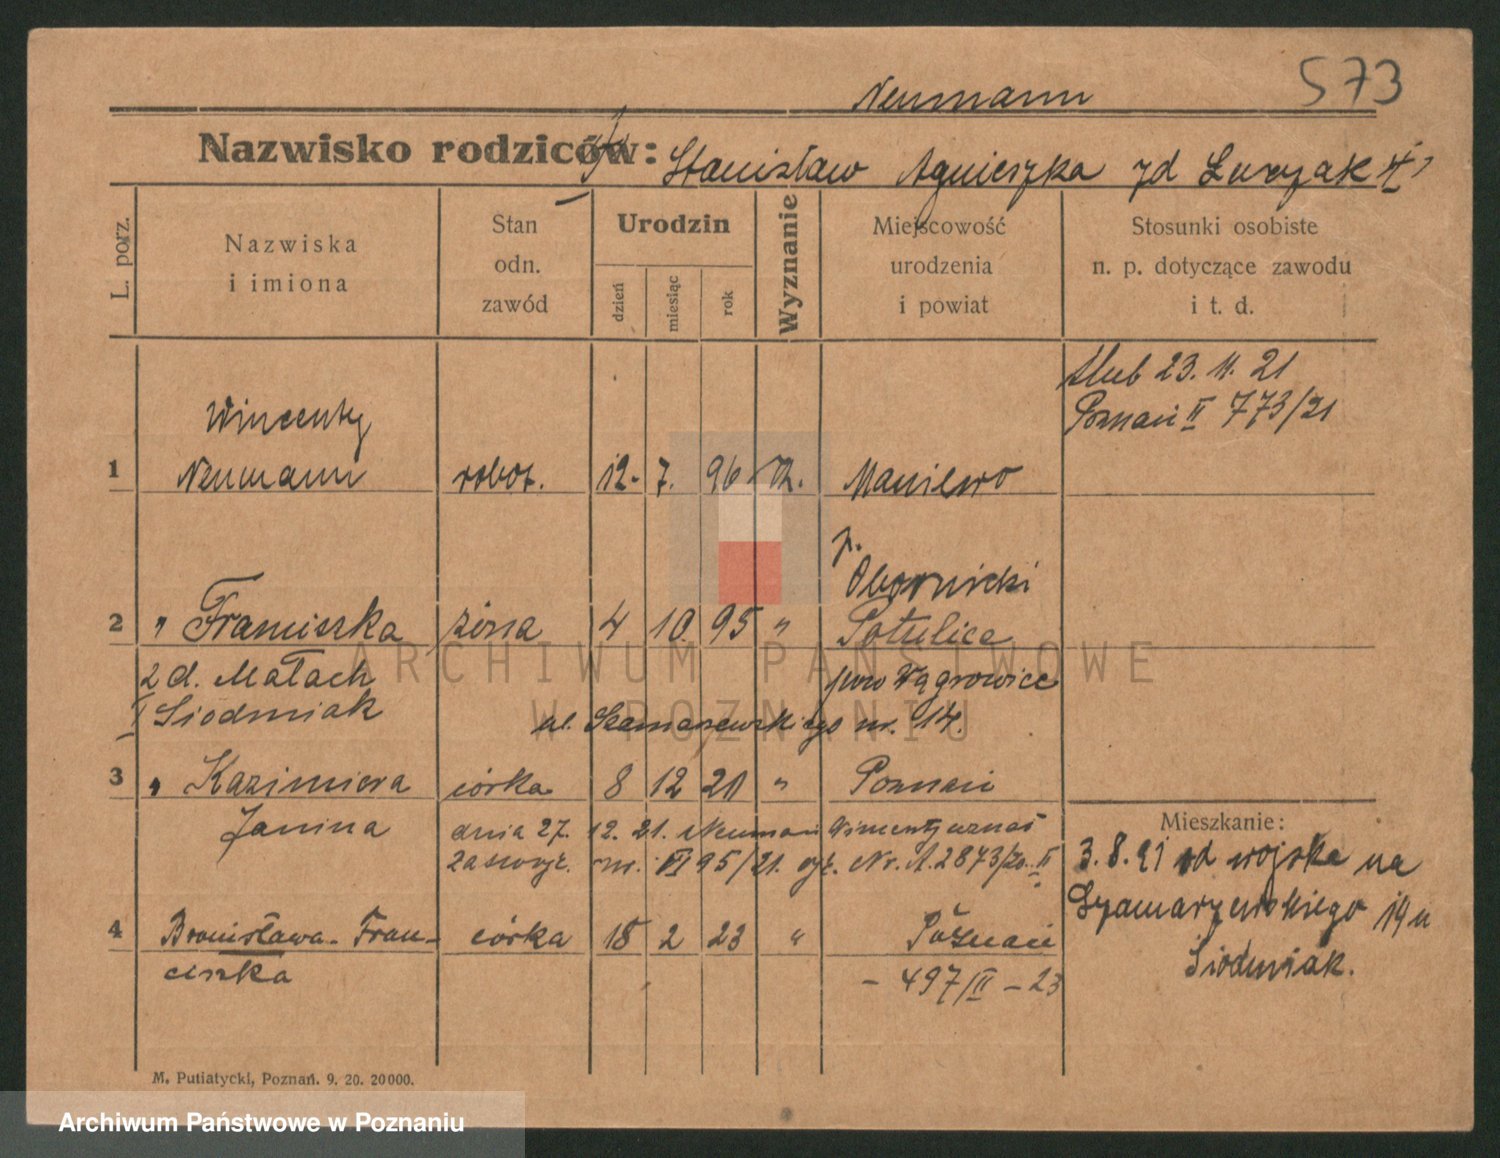 573
Neumann
Nazwisko rodziców: Stanisław Agnieszka zd
L. porz.
Nazwiska i imiona
Stan odn. zawód
Urodzin
dzień
miesiąc
rok
Wyznanie
Miejscowość urodzenia i powiat
Stosunki osobiste n. p. dotyczące zawodu i t. d.
ślub 23. 11. 21
Poznań II 773/21
Wincenty
1 Neumann robot. 12. 7. 96 Maniewo
p.
Obornicki
2 " Franciszka żona 4 10. 95 " Potulice
z d. Małach pow Wągrowiec
Siodmiak ul. Szamarzewskiego nr. 14.
3 " Kazimiera córka 8 12 20 " Poznań
Janina dnia 27. 12. 21. Neumann Wincenty uznał
nr. VI 95/21. Nr. A. 2873/20. II
4 Bronisława-Fran- córka 18 2 23 " Poznań
ciszka - 497/II - 23
Mieszkanie:
3. 8. 21 od wojska na
Szamarzewskiego 14 u
Siodmiak.
M. Putiatycki, Poznań. 9. 20. 20000.
ARCHIWUM PAŃSTWOWE
W POZNANIU
Archiwum Państwowe w Poznaniu